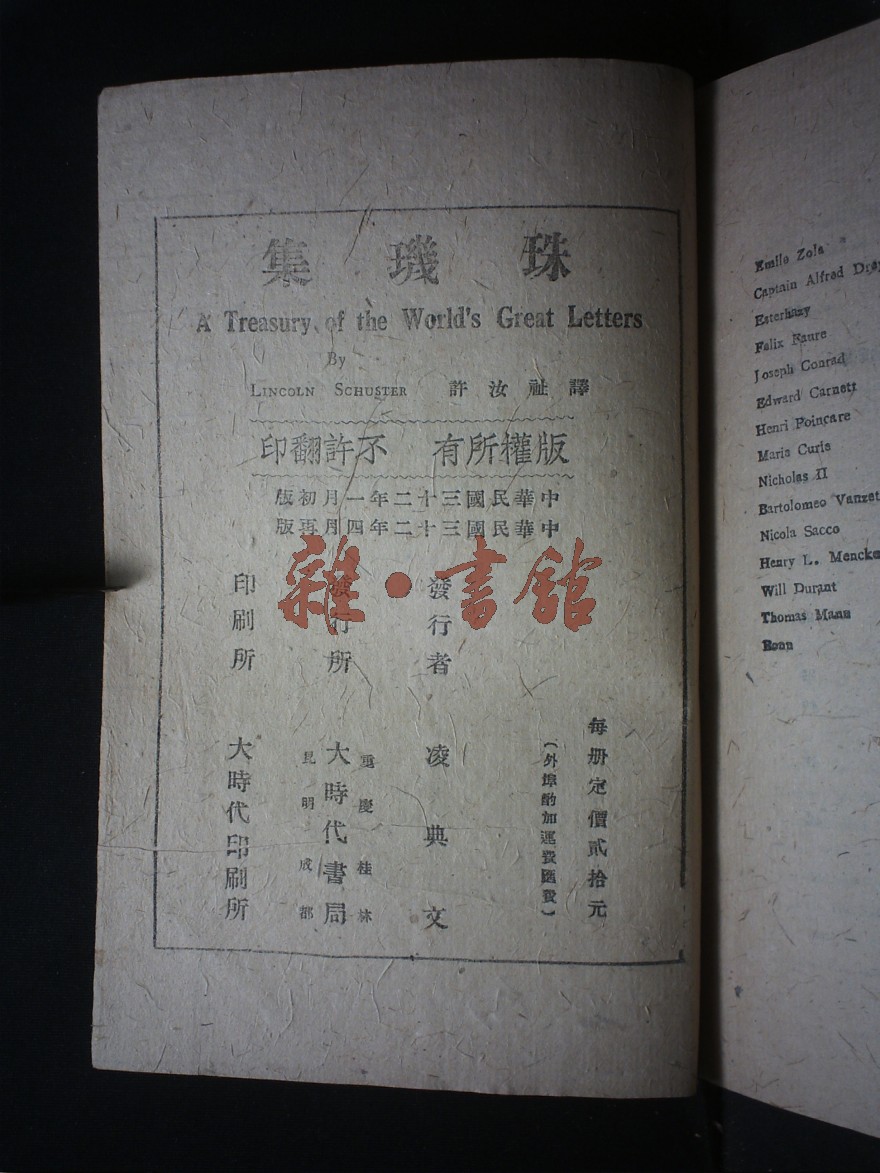 珠璣集
A Treasury of the World's Great Letters
By
LINCOLN SCHUSTER 許汝祉譯
版權所有 不許翻印
中華民國三十二年一月初版
中華民國三十二年四月再版
每册定價貳拾元
(外埠酌加運費匯費)
發行者 凌典文
發行所 大時代書局
重慶 桂林
昆明 成都
印刷所 大時代印刷所
雜·書館
Emile Zola
Captain Alfred Drey
Esterhazy
Felix Faure
Joseph Conrad
Edward Garnett
Henri Poincare
Marie Curie
Nicholas II
Bartolomeo Vanzet
Nicola Sacco
Henry L. Mencke
Will Durant
Thomas Mann
Bonn